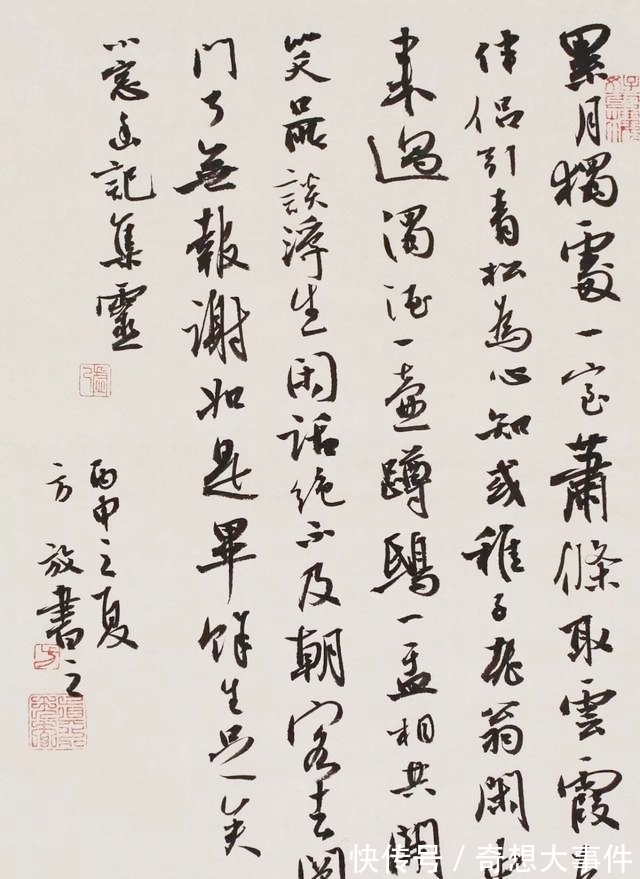 累月獨處一室蕭條取雲霞
伴侣引青松為心知或稚子老翁閑
来過濁酒一壺蹲鴟一盂相共開
笑品談浮生閑話絶不及朝客去關
門了無報謝如是畢餘生足矣
小窓幽記集靈
丙申之夏
方放書之
快传号 / 奇想大事件